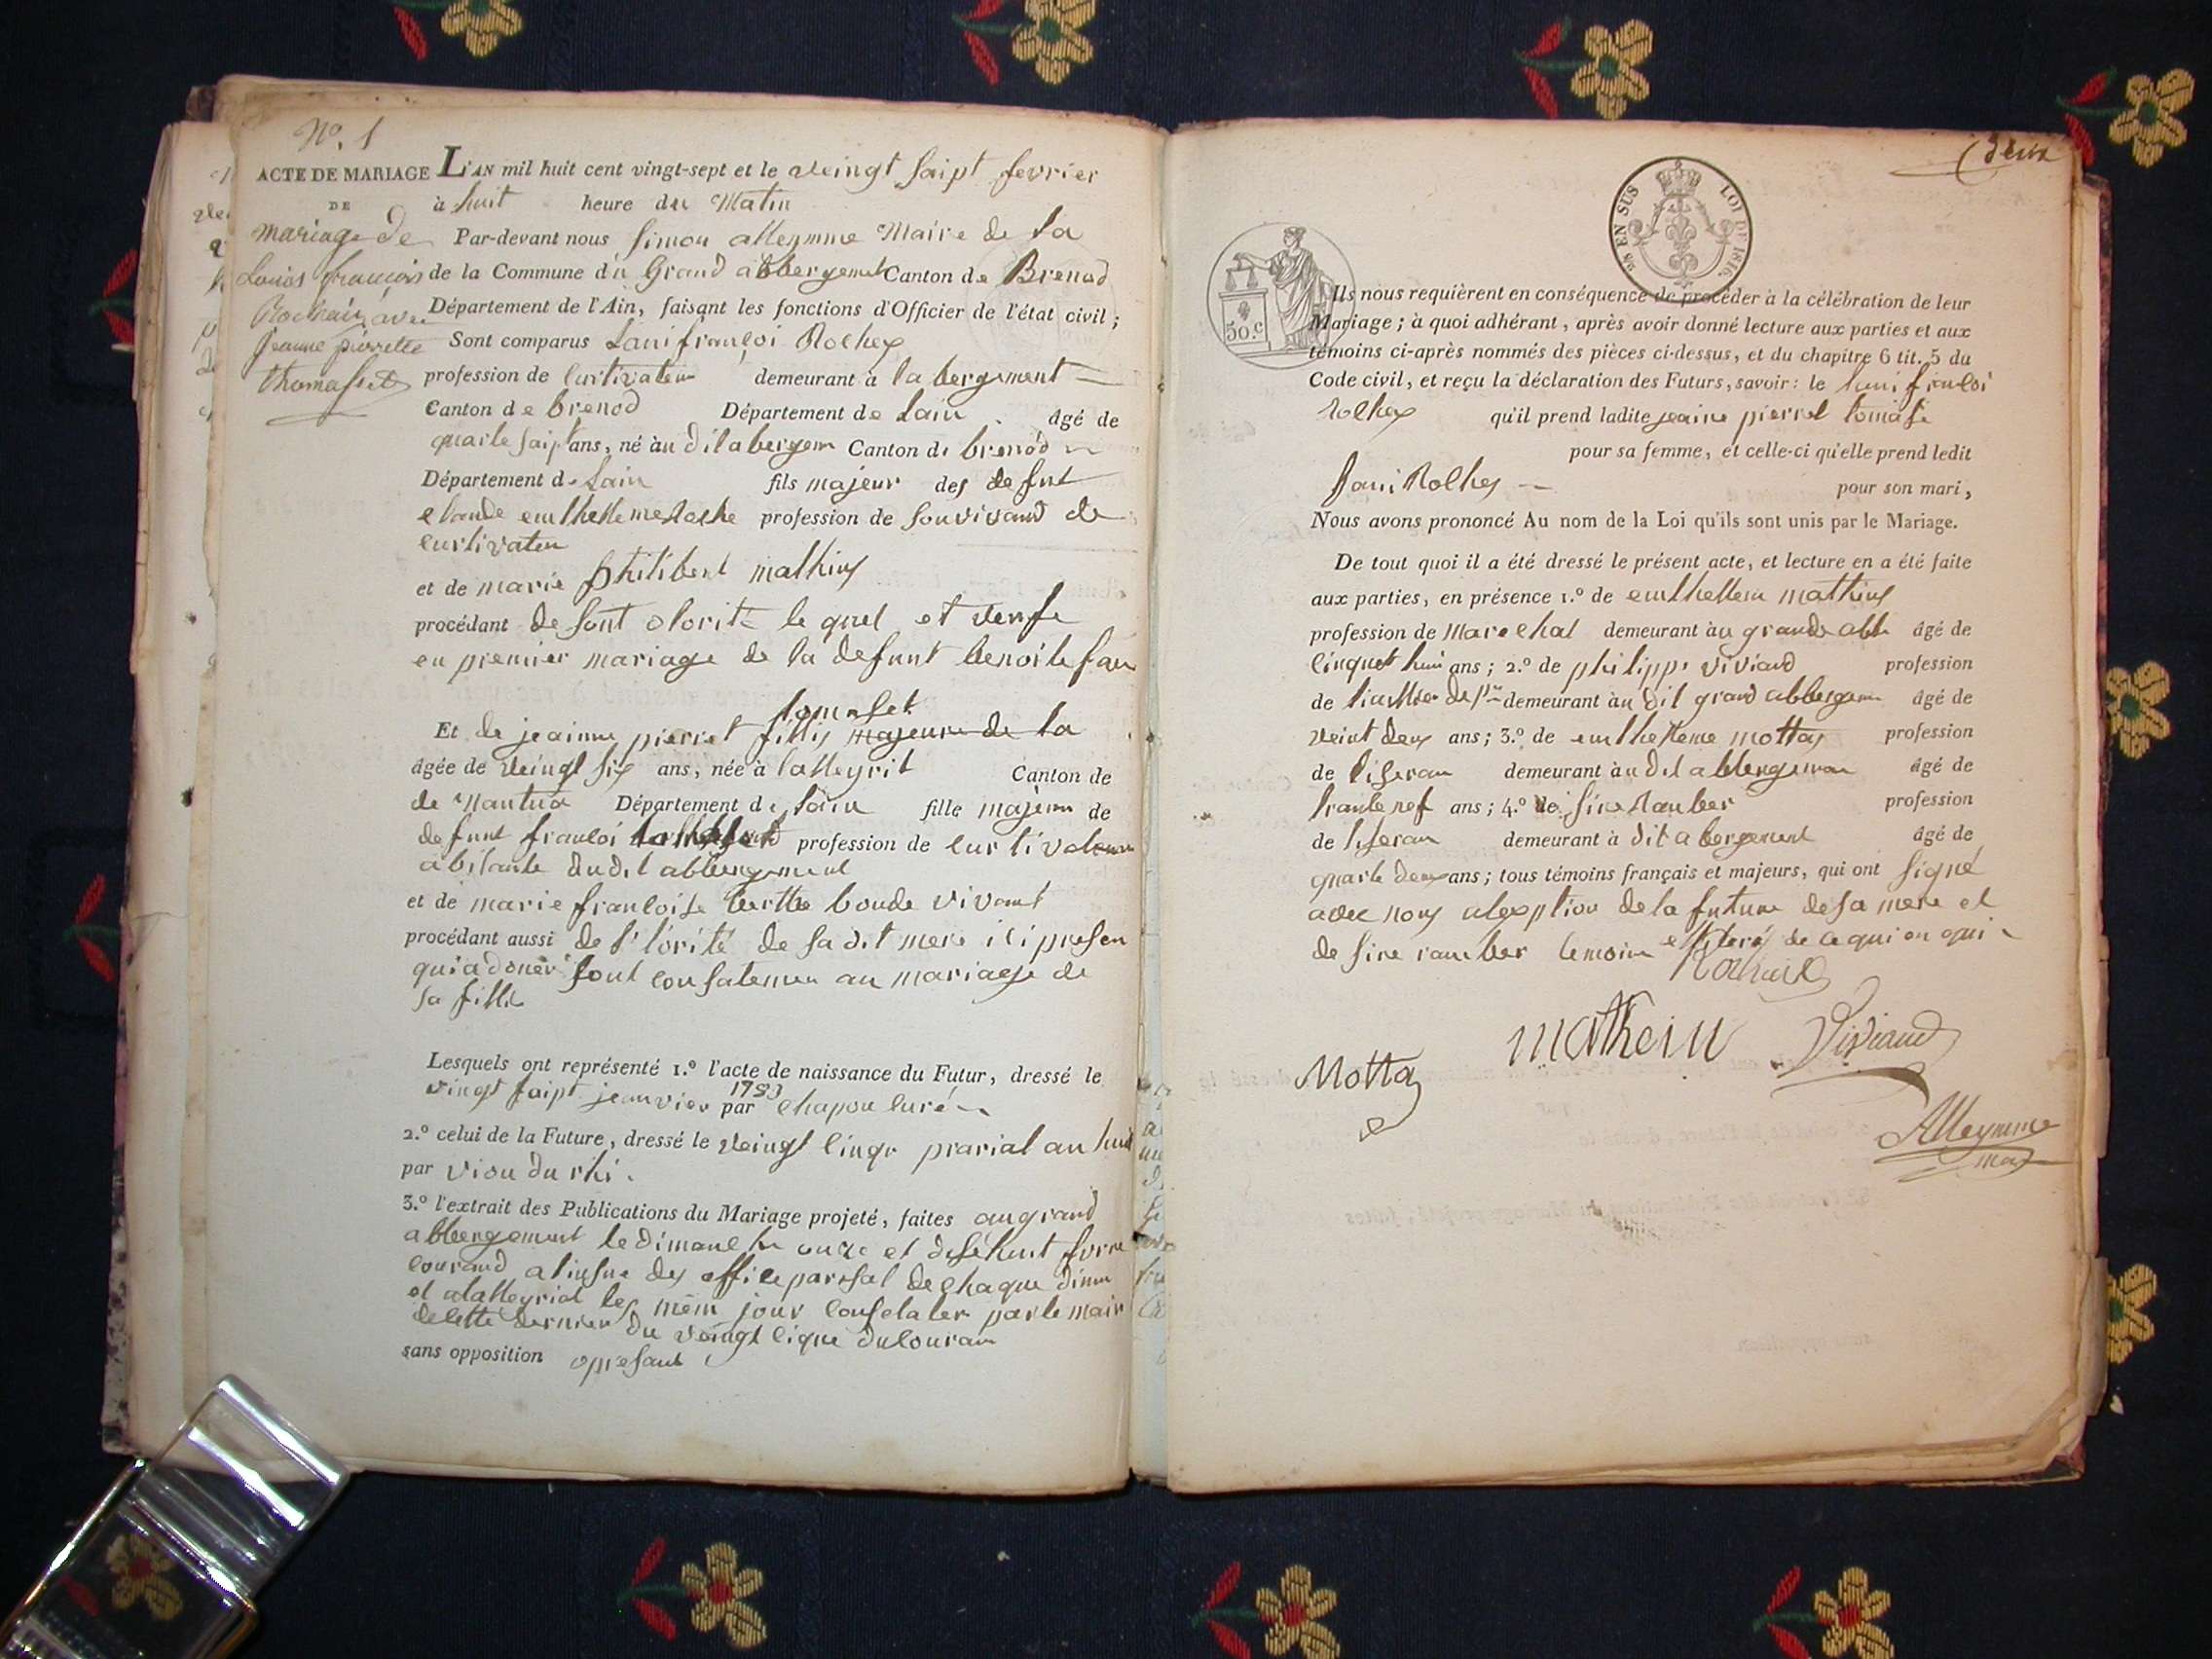 N.º 1
ACTE DE MARIAGE
DE
mariage de
Louis françois
Rochaix avec
Jeanne pierrette
thomasset
L'AN mil huit cent vingt-sept et le veingt saipt fevrier
à huit heure du Matin
Par-devant nous Simon alleymme Maire de la
de la Commune du Grand abbergement Canton de Brenod
Département de l'Ain, faisant les fonctions d'Officier de l'état civil;
Sont comparus Loui françoi Rochex
profession de curtivateur demeurant à la bergement
Canton de brenod Département de Lain âgé de
quarte saipt ans, né au dit abergem Canton de brenod
Département de Lain fils majeur des defunt
profession de
curtivateur
et de marie philibert mathieu
procédant de sont otorité le quel et
en premier mariage de la defunt benoite
tomaset
Et de jeainne pierret fillis majeure de la
âgée de veingt six ans, née à lalleyrit Canton de
de Nantua Département de Lain fille majeur de
defunt francoi profession de curtivateur
abitante dudit abbergement
et de marie francoise vivant
procédant aussi de l'torité de sa dit mere ici presen
qui a doner sont consatemen au mariage de
sa fille
Lesquels ont représenté 1.º l'acte de naissance du Futur, dressé le
vingt saipt jeanvier par chapou curé
2.º celui de la Future, dressé le veingt cinqe prarial an huit
par viou du rhi.
3.º l'extrait des Publications du Mariage projeté, faites au grand
abbergement le dimanche onze et disehuit
courand a linsue des office parosal de chaque
et alalleyriat les mem jour par le mair
de cette dernier du veingt cique du couran
sans opposition
deux
25 EN SUS LOI DE 1816.
50.c
Ils nous requièrent en conséquence de procéder à la célébration de leur
Mariage; à quoi adhérant, après avoir donné lecture aux parties et aux
témoins ci-après nommés des pièces ci-dessus, et du chapitre 6 tit. 5 du
Code civil, et reçu la déclaration des Futurs, savoir: le Loui francoi
rochex qu'il prend ladite jeaine pierret tomase
pour sa femme, et celle-ci qu'elle prend ledit
Loui Rochex pour son mari,
Nous avons prononcé Au nom de la Loi qu'ils sont unis par le Mariage.
De tout quoi il a été dressé le présent acte, et lecture en a été faite
aux parties, en présence 1.º de enthelleme mathieu
profession de Marechal demeurant au grande abb âgé de
cinquet huit ans; 2.º de philippe viviand profession
de demeurant au dit grand abbergem âgé de
veint deux ans; 3.º de enthelleme mottaz profession
de tiseran demeurant au dit abbergeman âgé de
trante nef ans; 4.º de profession
de tiseran demeurant à dit abergement âgé de
quarte deux ans; tous témoins français et majeurs, qui ont signé
avec nous alexption de la future de sa mere et
de temoin de ce qui on qui
Rochaix
Mottaz
mathein
Viviand
Alleymme